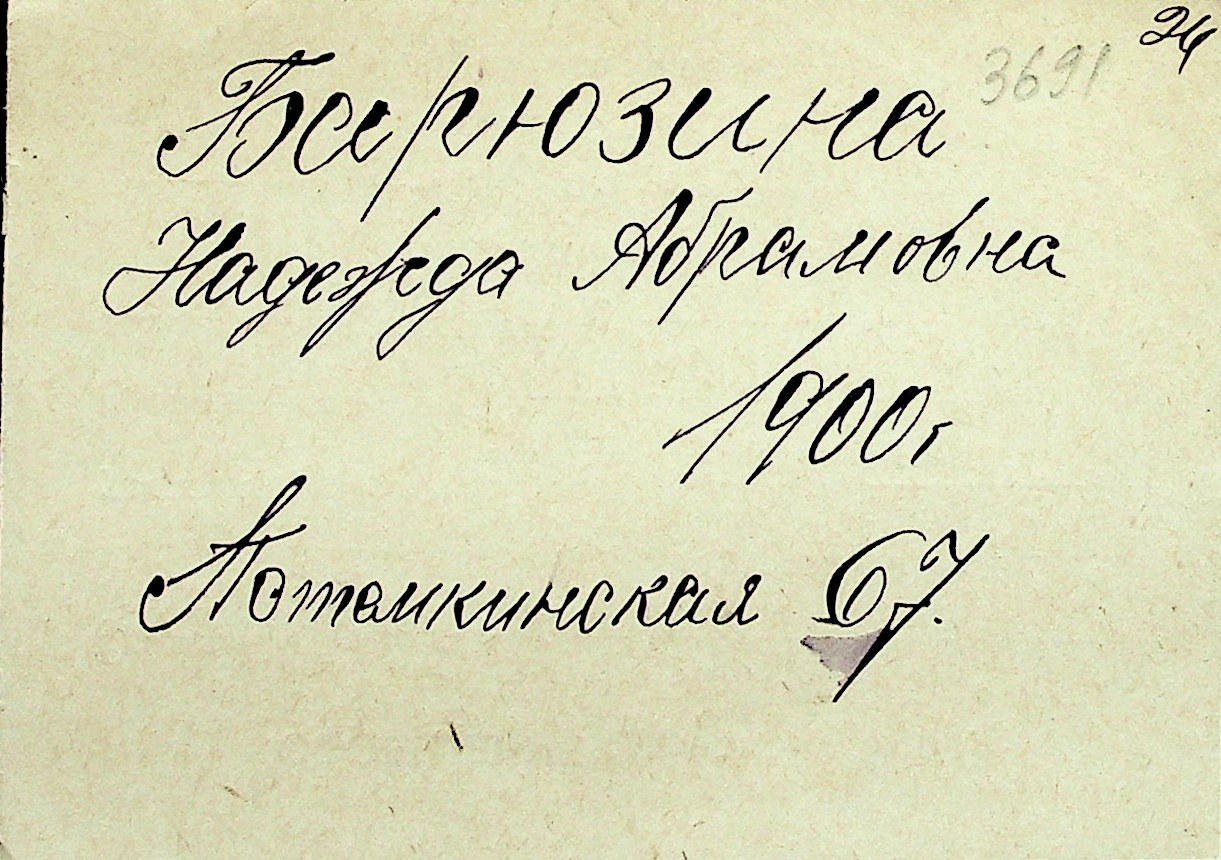 24
3691
Барюзина
Надежда Абрамовна
1900г
Потемкинская 67.